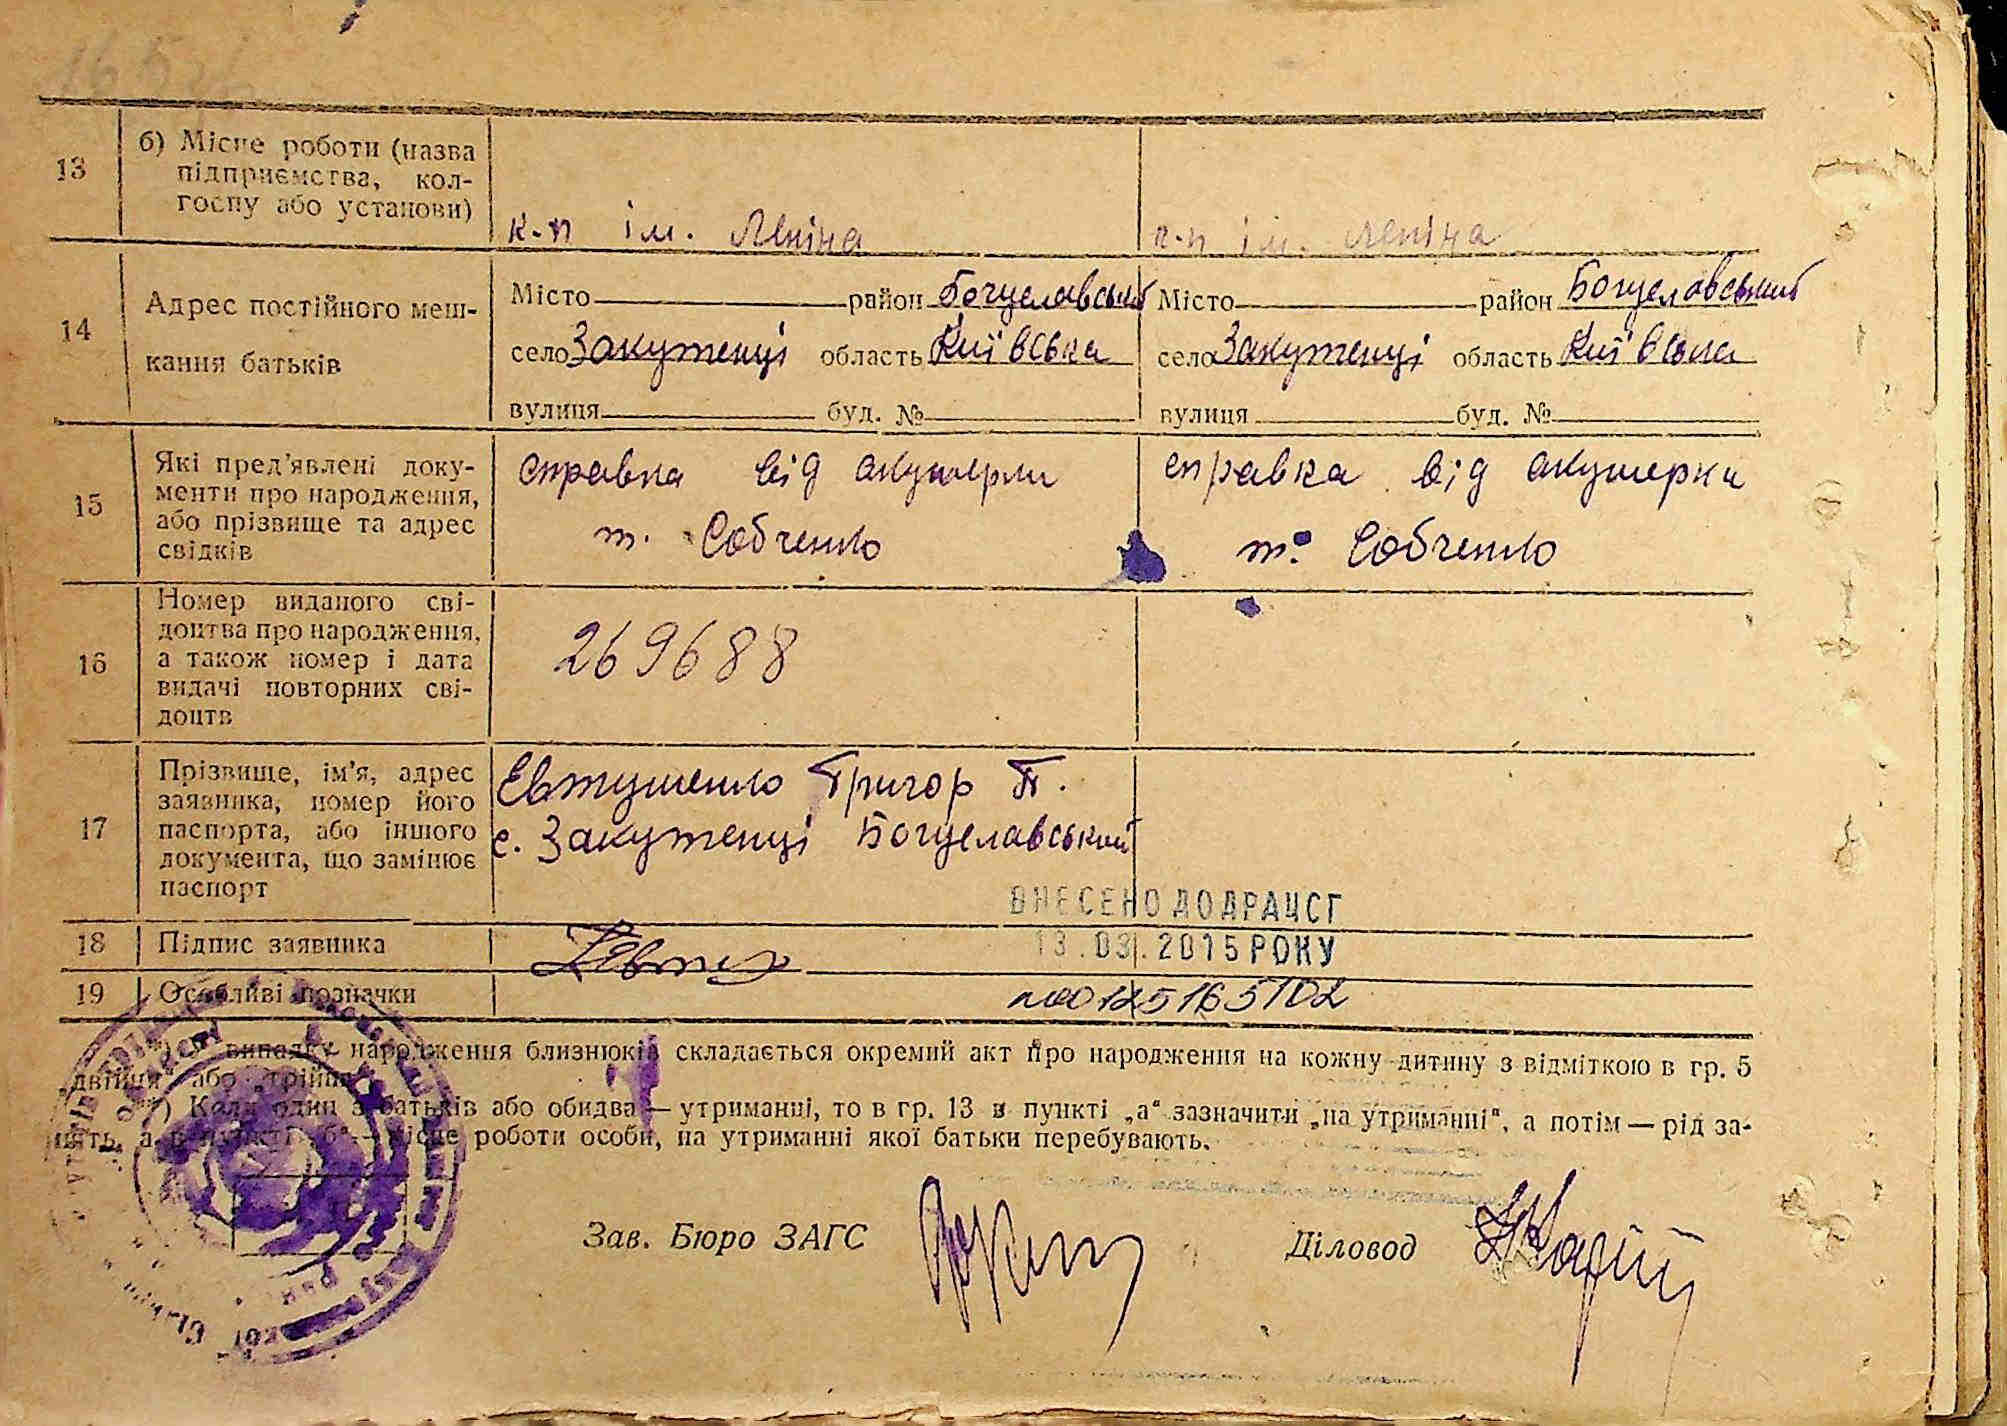 13
б) Місце роботи (назва
підприємства, кол-
госпу або установи)
к-п ім. Леніна
к-п ім. Леніна
14
Адрес постійного меш-
кання батьків
Місто район Богуславський
село Закутенці область Київська
вулиця буд. №
Місто район Богуславський
село Закутенці область Київська
вулиця буд. №
15
Які пред'явлені доку-
менти про народження,
або прізвище та адрес
свідків
справка від акушерки
т. Собченко
справка від акушерки
т. Собченко
16
Номер виданого сві-
доцтва про народження,
а також номер і дата
видачі повторних сві-
доцтв
269688
17
Прізвище, ім'я, адрес
заявника, номер його
паспорта, або іншого
документа, що замінює
паспорт
Евтушенко Григор П.
с. Закутенці Богуславський
ВНЕСЕНО ДО ДРАЦСГ
13.03.2015 РОКУ
18
Підпис заявника
19
Особливі позначки
00125165102
*) У випадку народження близнюків складається окремий акт про народження на кожну дитину з відміткою в гр. 5
„двійня" або „трійня".
**) Коли один з батьків або обидва — утриманці, то в гр. 13 в пункті „а" зазначити „на утриманні", а потім — рід за-
нять, а в пункті „б" — місце роботи особи, на утриманні якої батьки перебувають.
Зав. Бюро ЗАГС
Діловод